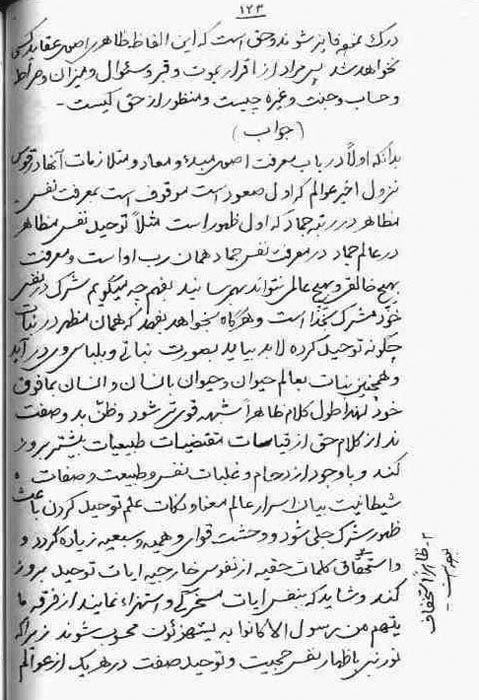 ١٢٣
درک نموده فایز شوند و حق است که این الفاظ ظاهری اصول عقاید کسی
نخواهد شد پس مراد از اقرار بموت و قبر و سئوال و میزان و صراط
و حساب و جنت و غیره چیست و منظور از حق کیست -
(جواب)
بدانکه اولاً در باب معرفت اصول مبدء و معاد و متلازمات آنها در قوس
نزول اخیر عوالم که اول صعود است موقوف است بمعرفت نفس -
مظاهر در رتبه جماد که اول ظهور است مثلاً توحید نفس مظاهر
در عالم جماد در معرفت نفس جماد همان رب او است و معرفت
بهیچ خالقی و بهیچ عالمی نتواند بهم رسانید بفهم چه میگویم شرک در نفس
خود مشرک بخدا است و هرگاه بخواهد بفهمد که همان مظهر در نبات
چگونه توحید کرده لابد بیاید بصورت نباتی و بلباس وی در آید
و همچنین نبات بعالم حیوان و حیوان بانسان و انسان بمافوق
خود لهذا طول کلام ظاهراً شبهه قوی می شود و ظن بد و صفت
ند از کلام حق از قیاسات مقتضیات طبیعیات بیشتر بروز
کند و با وجود ازدحام و غلبات نفس و طبیعت و صفات
شیطانیت بیان اسرار عالم معنا و نکات علم توحید کردن باعث
ظهور شرک جلی شود و وحشت قوای وهمیه و سبعیه زیاده گردد و
و استحقاق کلمات حقیه از نفوس خارجیه ایات توحید بروز
کند و شاید که بنفس ایات مسخرگی و استهزاء نمایند از فرقه ما
یتهم من رسول الا کانوا به یستهزئون محسوب شوند زیرا که
نور نبی باظهار نفس حجیت و توحید صفت در هر یک از عوالم
٢- ظاهراً استخفاف